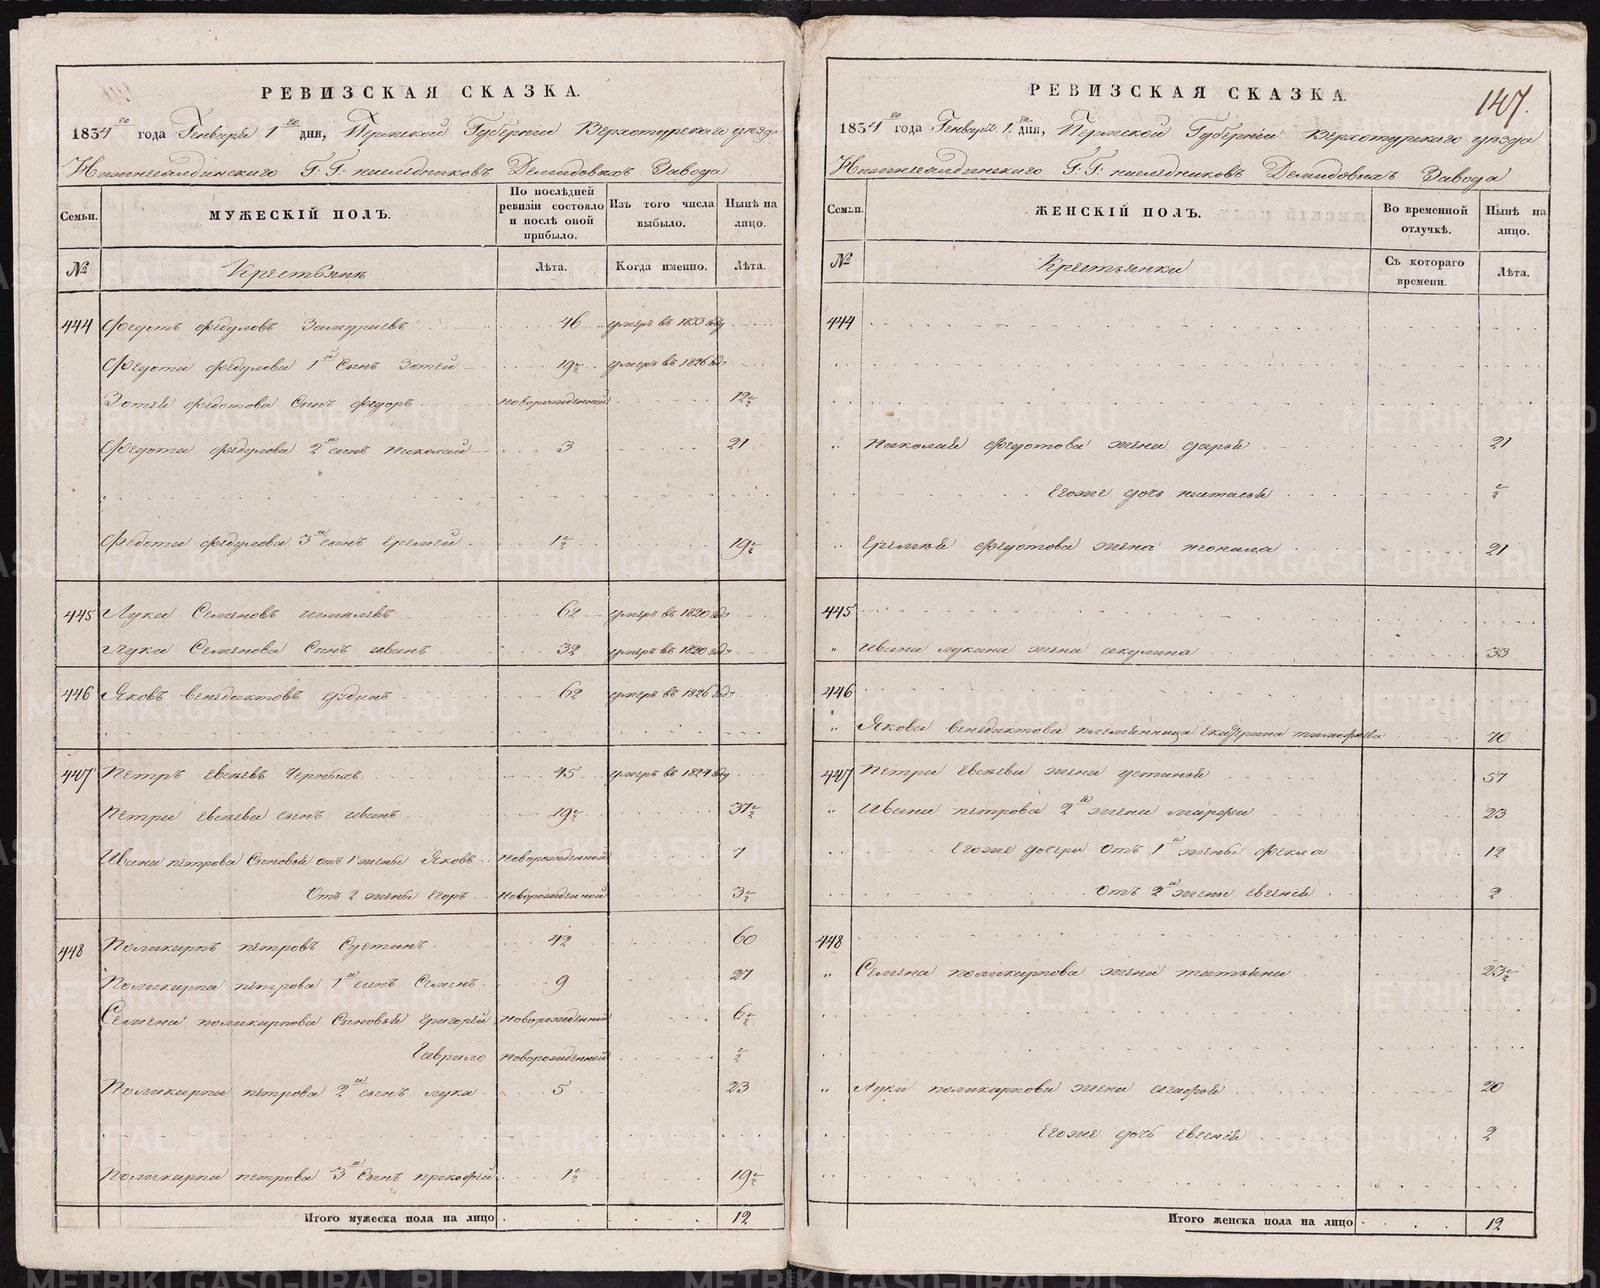 РЕВИЗСКАЯ СКАЗКА.
1834го года Генваря 1го дня, Пермской Губернiи Верхотурскаго уѣзда
Нижнесалдинскаго Г.Г. наслѣдниковъ Демидовыхъ Завода
Семьи. МУЖЕСКIЙ ПОЛЪ. По послѣдней ревизiи состояло и послѣ оной прибыло. Изъ того числа выбыло. Нынѣ на лицо.
№ Крестьянъ Лѣта. Когда именно. Лѣта.
444 Федотъ Федуловъ 46 умеръ въ 1833 году
Федота Федулова 1й сынъ Зотей 19½ умеръ въ 1826 году
Зотея Федотова сынъ Федоръ новорожденной 12½
Федота Федулова 2й сынъ Николай 3 21
Федота Федулова 3й сынъ Еремей 1½ 19½
445 Лука Семеновъ 62 умеръ въ 1820 году
Луки Семенова сынъ Иванъ 32 умеръ въ 1820 году
446 Яковъ Венедиктовъ 62 умеръ въ 1826 году
447 Петръ Евсѣевъ Черныхъ 45 умеръ въ 1824 году
Петра Евсѣева сынъ Иванъ 19½ 37½
Ивана Петрова сыновья отъ 1 жены Яковъ новорожденной 7
Отъ 2 жены Егоръ новорожденной 3½
448 Поликарпъ Петровъ Суетинъ 42 60
Поликарпа Петрова 1й сынъ Семенъ 9 27
Семена Поликарпова сыновья Григорей новорожденной 6½
Гаврило новорожденной ½
Поликарпа Петрова 2й сынъ Лука 5 23
Поликарпа Петрова 3й сынъ Прокофей 1½ 19½
Итого мужеска пола на лицо 12
147.
РЕВИЗСКАЯ СКАЗКА.
1834го года Генваря 1го дня, Пермской Губернiи Верхотурскаго уѣзда
Нижнесалдинскаго Г.Г. наслѣдниковъ Демидовыхъ Завода
Семьи. ЖЕНСКIЙ ПОЛЪ. Во временной отлучкѣ. Нынѣ на лицо.
№ Крестьянки Съ котораго времени. Лѣта.
444
" Николая Федотова жена Дарья 21
Егоже дочь Настасья ½
" Еремея Федотова жена Неонила 21
445
" Ивана Лукина жена Акулина 33
446
" Якова Венедиктова племянница Екатерина Тимофеева 70
447 Петра Евсѣева жена Устинья 57
" Ивана Петрова 2я жена Марфа 23
Егоже дочери отъ 1й жены Фекла 12
отъ 2й жены Евгенья 2
448
" Семена Поликарпова жена Татьяна 25½
" Луки Поликарпова жена Агафья 20
Егоже дочь Евгенья 2
Итого женска пола на лицо 12
METRIKI.GASO-URAL.RU